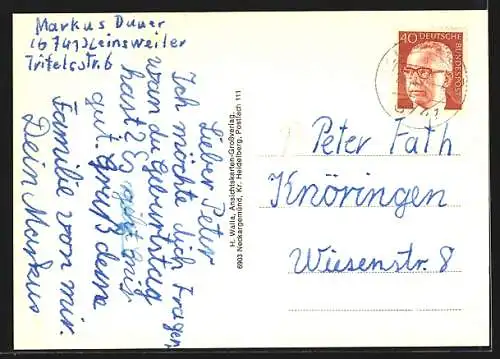 Markus Duner
(6741) Leinsweiler
Trifelsstr. 6
Lieber Peter
Ich möchte dich Fragen
wan du Geburtstag
hast? Es geht mir
gut. Gruß deine
Familie von mir.
Dein Markus
H. Walla, Ansichtskarten-Großverlag,
6903 Neckargemünd, Kr. Heidelberg, Postfach 111
40 DEUTSCHE
BUNDESPOST
Peter Fath
Knöringen
Wiesenstr. 8